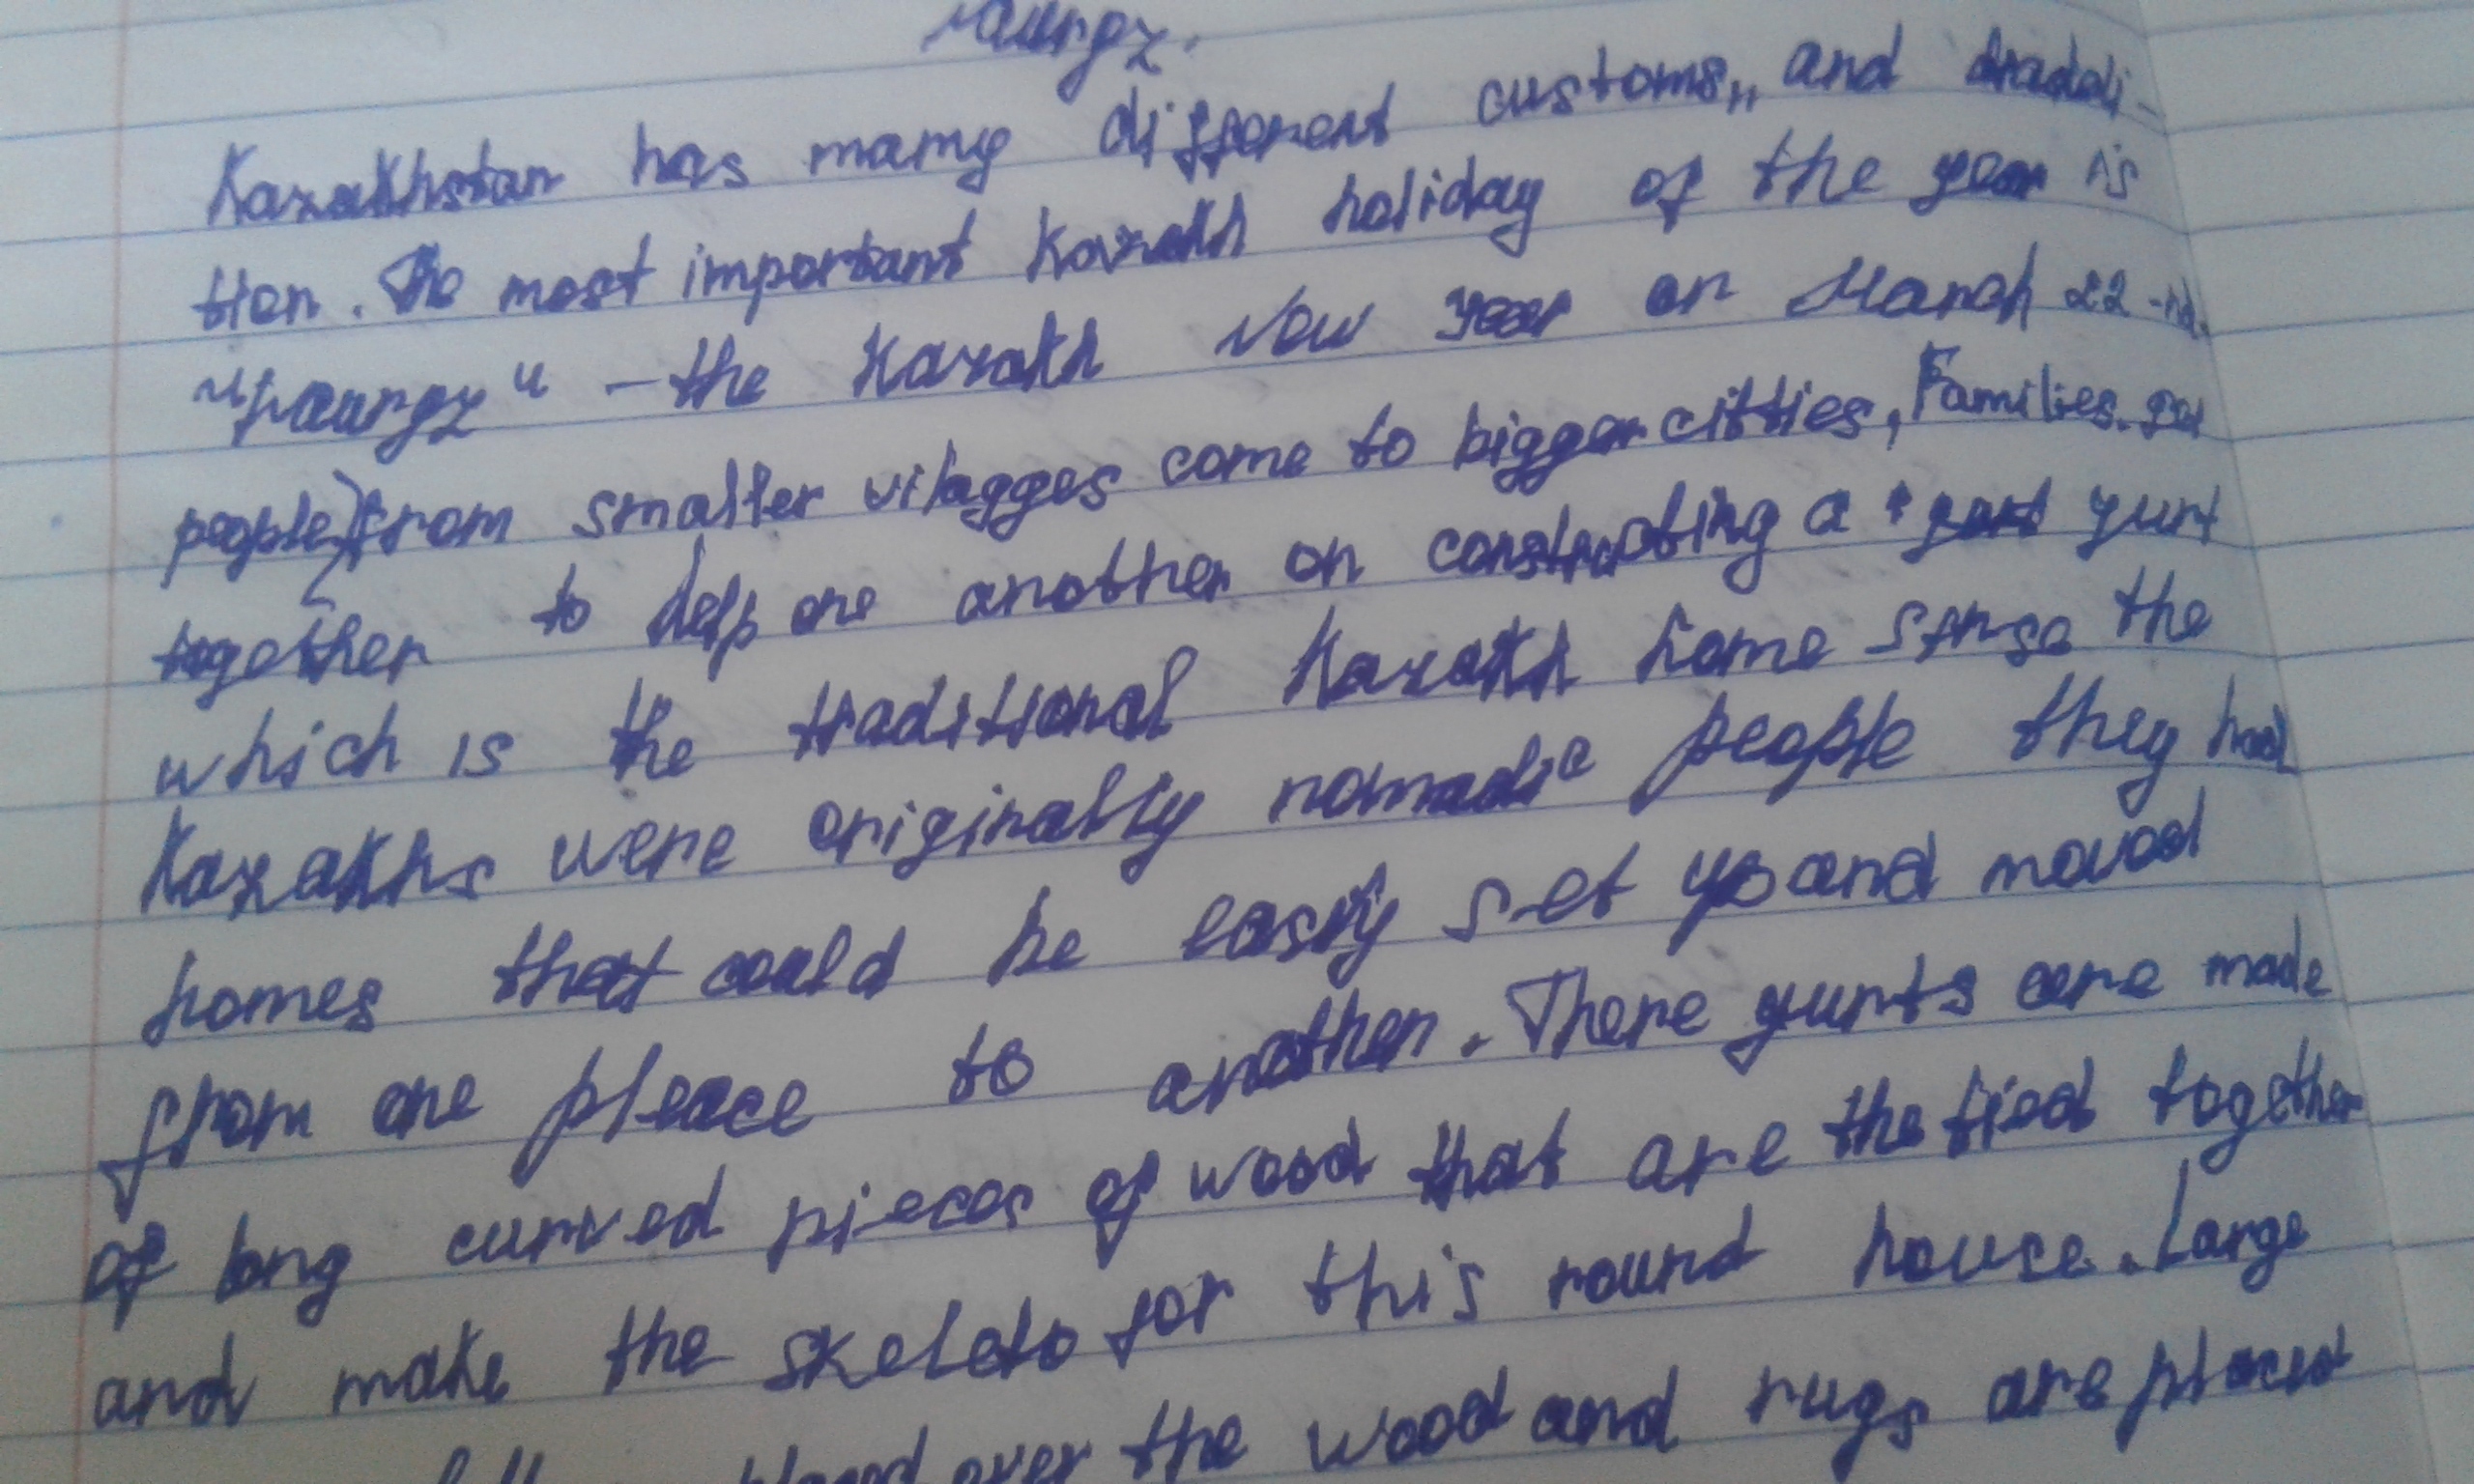 Nauryz.
Kazakhstan has many different customs,, and tradoli-
tion. The most important Kazakh holiday of the year is
"Nauryz" - the Kazakh New Year on March 22-nd.
people from smaller vilagges come to bigger citties, Families.
together to help one another on constructing a yurt
which is the traditional Kazakh home sinse the
Kazakhs were originally nomadic people they had
homes that could be easily set up and moved
from one pleace to another. There yurts are made
of long curved pieces of wood that are the tied together
and make the skeleto for this round house. Large
over the wood and rugs are placed